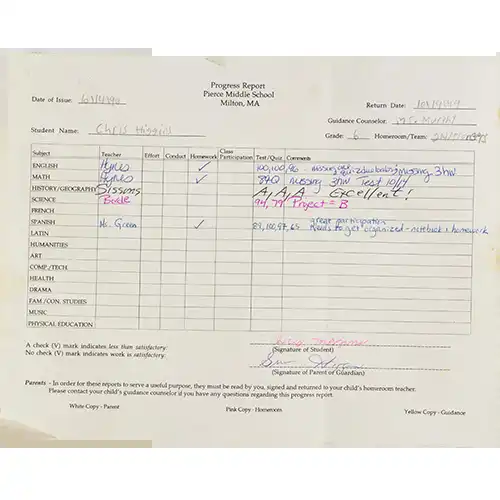 Progress Report
Pierce Middle School
Milton, MA
Date of Issue:
Return Date:
Guidance Counselor: Ms. Murphy
Student Name: Chris Higgins
Grade: 6 Homeroom/Team:
Subject Teacher Effort Conduct Homework Class Participation Test/Quiz Comments
ENGLISH Hynes ✓ 100, 100, 96 missing 3 HW
MATH Hynes ✓ missing 3HW Test 10/7
HISTORY/GEOGRAPHY Sissons A, A, A Excellent!
SCIENCE Bode 94, 79 Project = B
FRENCH
SPANISH Ms. Green ✓ 89, 100, 97, 65 great participation
Needs to get organized - notebook & homework
LATIN
HUMANITIES
ART
COMP./TECH.
HEALTH
DRAMA
FAM./CON. STUDIES
MUSIC
PHYSICAL EDUCATION
A check (V) mark indicates less than satisfactory.
No check (V) mark indicates work is satisfactory.
(Signature of Student)
(Signature of Parent of Guardian)
Parents - In order for these reports to serve a useful purpose, they must be read by you, signed and returned to your child's homeroom teacher.
Please contact your child's guidance counselor if you have any questions regarding this progress report.
White Copy - Parent Pink Copy - Homeroom Yellow Copy - Guidance